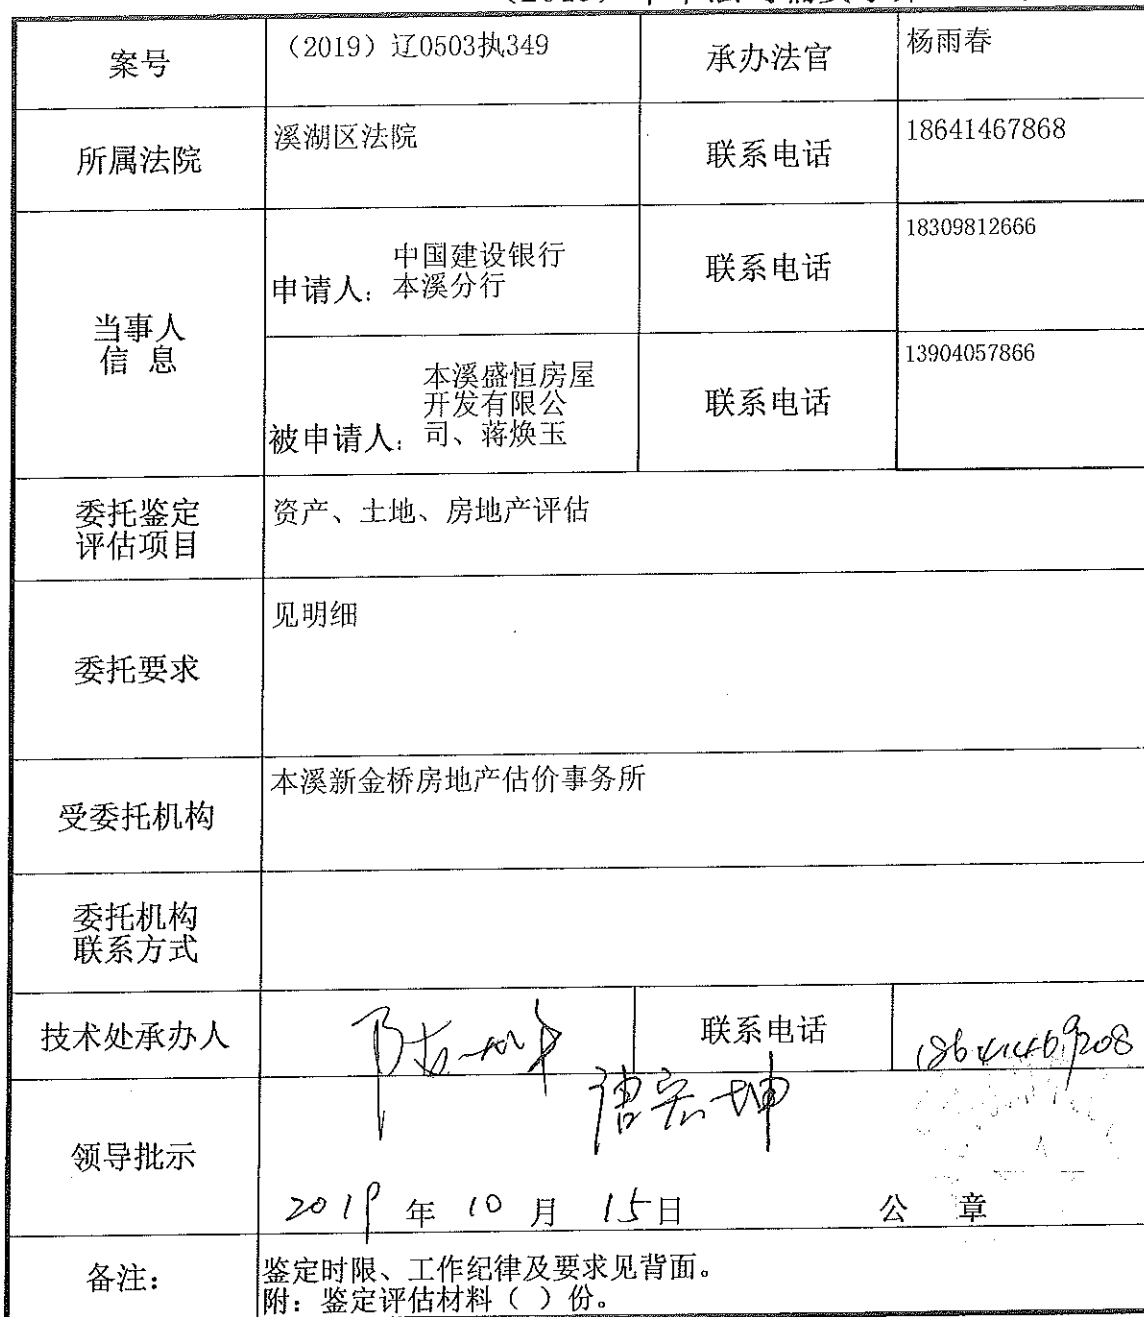 案号
（2019）辽0503执349
承办法官
杨雨春
所属法院
溪湖区法院
联系电话
18641467868
当事人
信 息
申请人：
中国建设银行
本溪分行
联系电话
18309812666
被申请人：
本溪盛恒房屋
开发有限公
司、蒋焕玉
联系电话
13904057866
委托鉴定
评估项目
资产、土地、房地产评估
委托要求
见明细
受委托机构
本溪新金桥房地产估价事务所
委托机构
联系方式
技术处承办人
联系电话
领导批示
2019 年 10 月 15日
公 章
备注：
鉴定时限、工作纪律及要求见背面。
附：鉴定评估材料（ ）份。